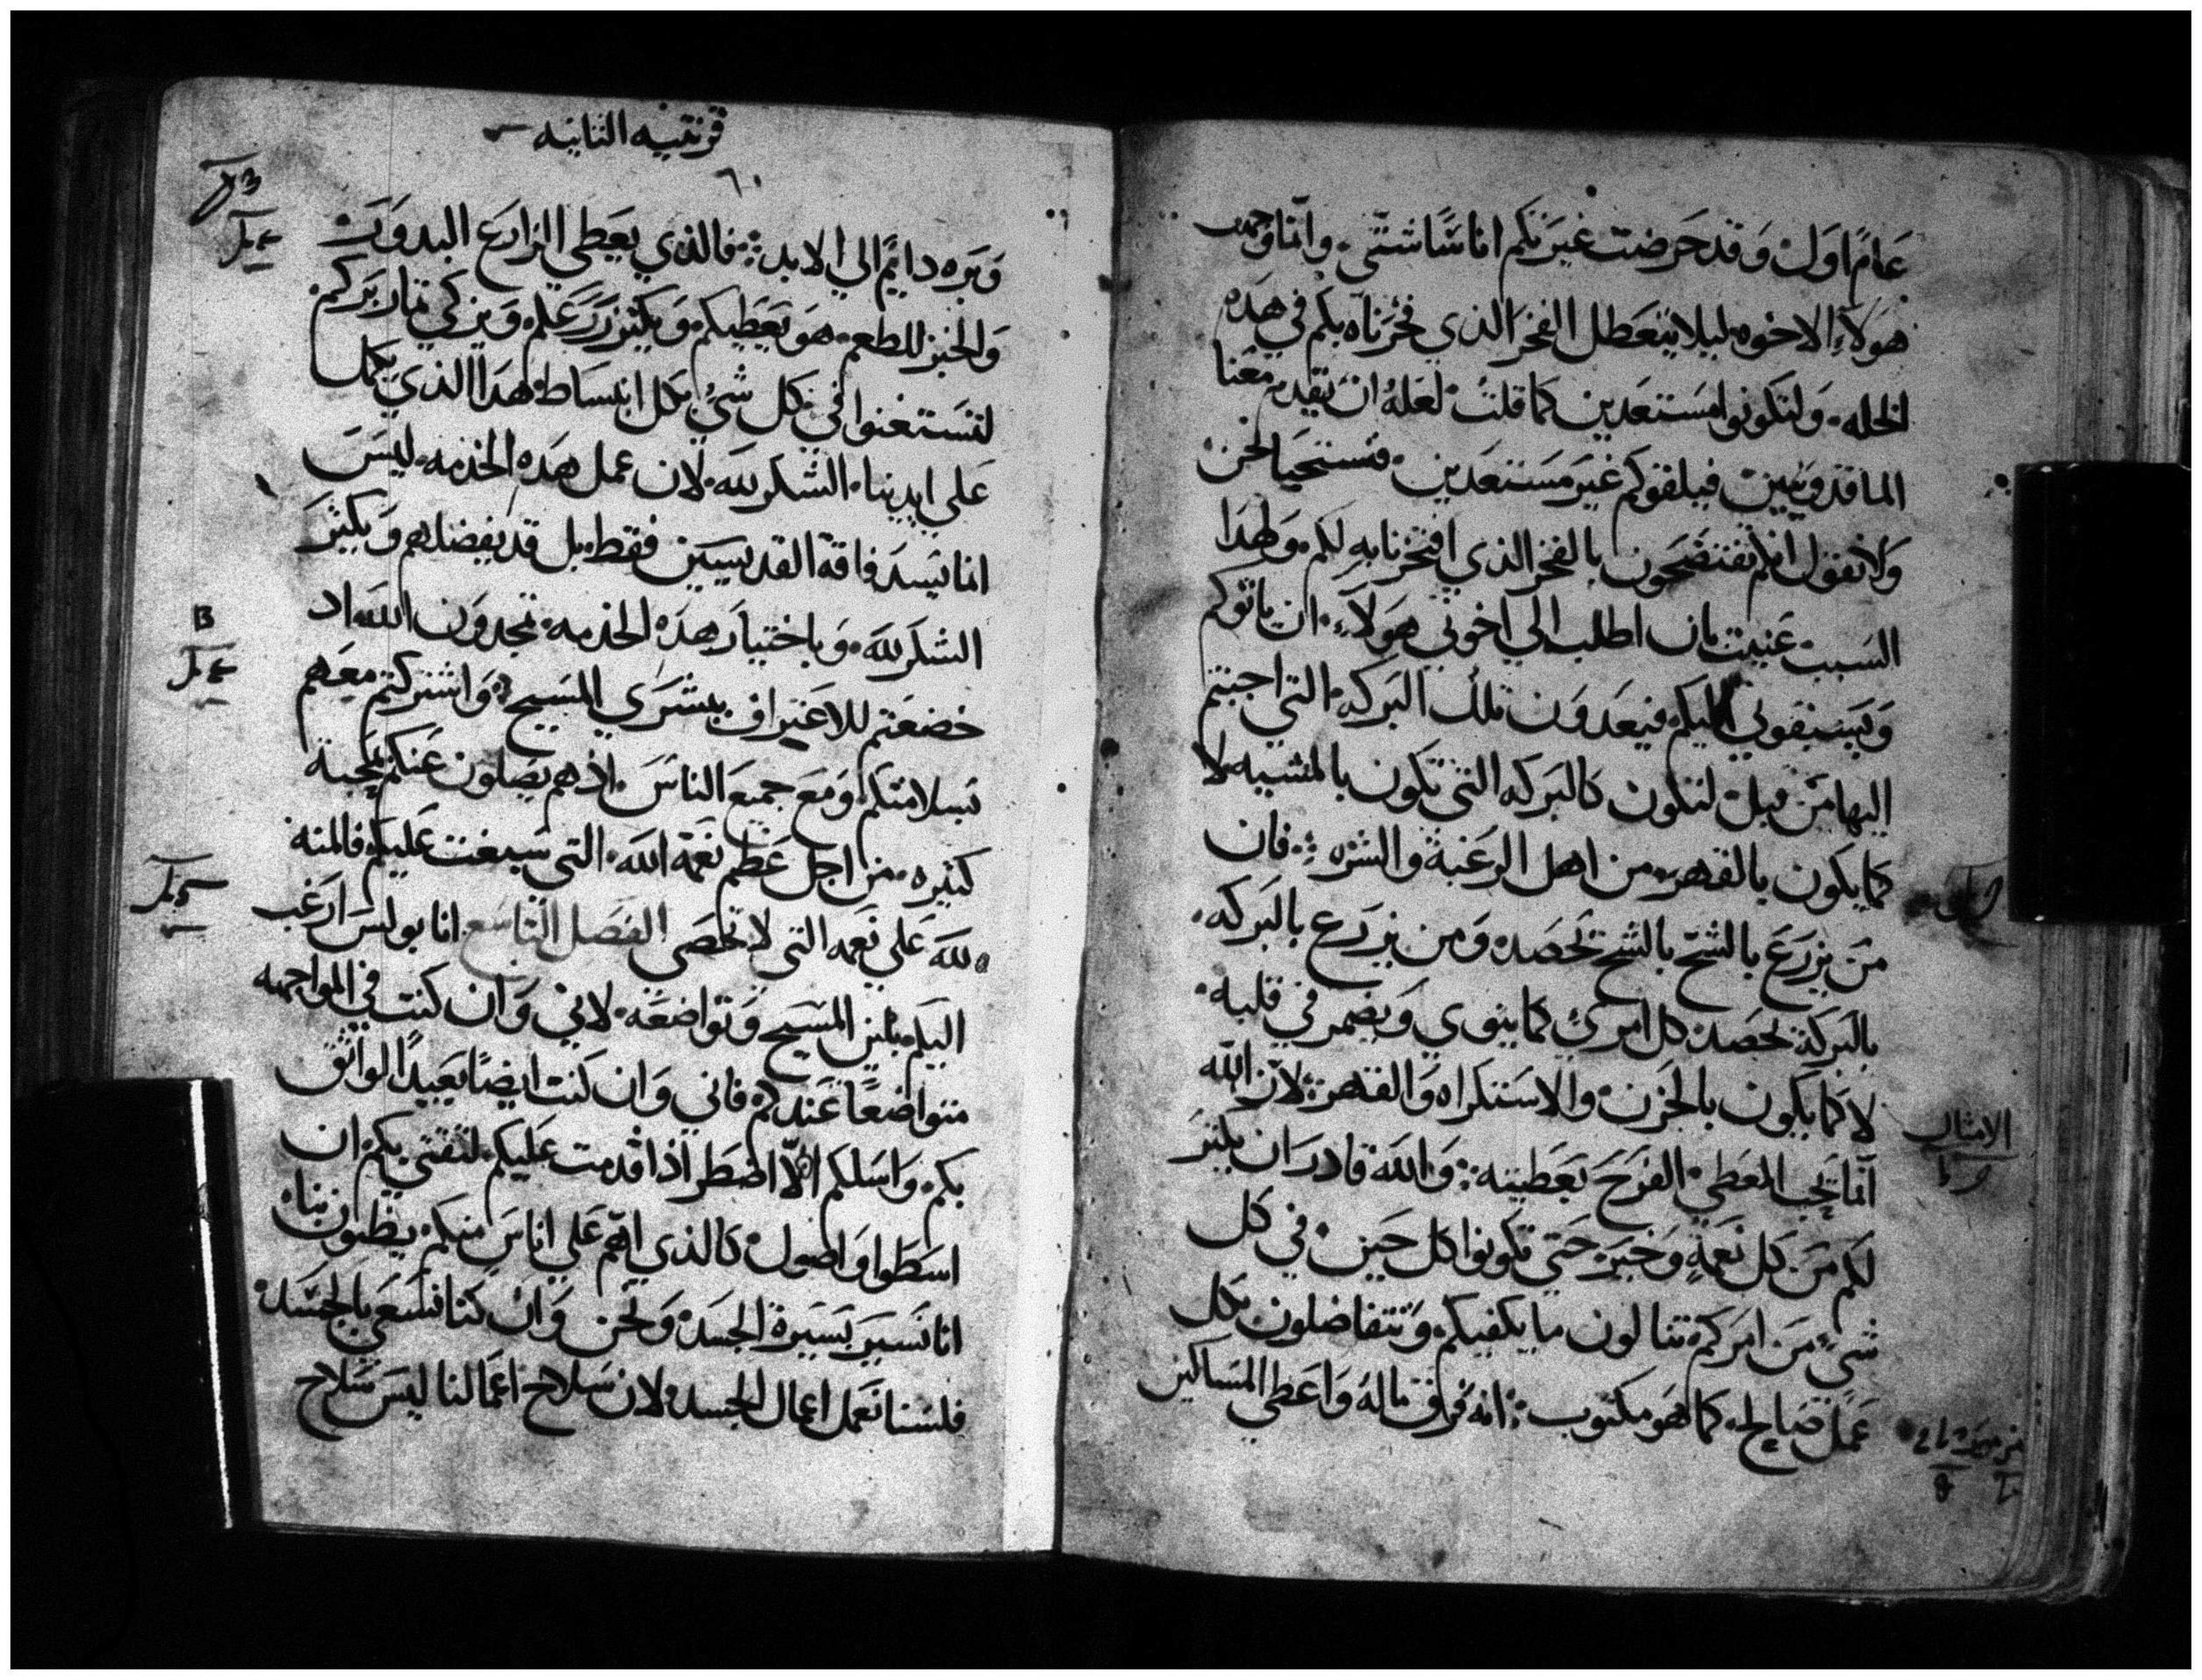 عَامًا اوَل وَقد حَرضت غيَركم اناسًا شتّي. وانما وجهت
هَولآءِ الاخوه ليلا يتعَطل الفخرَ الذي فخرَناه بكم في هَده
الخله. وَلتكونوا مسَتعَدين كما قلت لعَله ان يقدم مَعَنا
الماقدونيين فيلفوكم غيَر مسَتعَدين فنستحيا نحن
وَلا نقول انكم تفتضحَون بالفخر الذي افتخرنا به لكم. وَلهدا
السَبب عَنيت بان اطلب الي اخوتي هَولآءِ. ان ياتوكم
وَيسَبقوني اليكم فيعَدوَن تلك البَركه التي اجبتم
اليها مَن قبل لتكون كالبَركه التي تكون بالمشيه لا
كما يكون بالقهرَ من اهل الرغبة والشره. فان
مَن يزرَع بالشح بالشح تحَصَده وَمن يزرَع بالبَركه
بالبَركة يحَصَد. كل امرئ كما ينوي وَيضمر في قلبه.
لا كما يكون بالحَزن والاسَتكراه وَالقهر. لان الله
انما يحَب المعَطي الفرَح بعَطيته: وَالله قادر ان يكثر
لكم مَن كل نعَمةٍ وَخيَر حَتي تكونوا كل حَين في كل
شيءٍ مَن امرَكم تنالون ما يكفيكم وَتتفاضلون بكل
عَمل صَالح. كما هَو مكتوب: انه فرَق ماله وَاعَطي المسَاكين
الامثال
قرنتيه الثانيه
٦٠
وَبَره دايمًا الي الابد: فالذي يعَطي الزارعَ البدوَر
وَالخبز للطعم. هَو يعَطيكم وَيكثر زرَعَكم وَيزكي ثمار برَكم.
لتسَتغنوا في كل شيءٍ بكل انبسَاط هَدا الذي يكمل
عَلي ايدينا. الشكر لله. لان عمل هَده الخدمه. ليسَ
انما يسَد فاقة القديسَيين فقط. بل قد يفضلهم وَيكثرَ
الشكر لله. وَباختيار هَده الخدمه. تمجدوَن الله اد
خضعَتم للاعَترَاف ببشرَي المسَيح. وَاشترَكتم معَهم
بسلامتكم وَمَع جميعَ الناسَ. اذ هم يصَلون عَنكم بمحبة
كثيره. من اجل عَظم نعَمة الله. التي سَبغت عَليكم فالمنه
لله عَلي نعَمه التي لا تحَصَي الفصَل التاسَع انا بولس ارَغب
اليكم بلين المسَيح وَتواضعَه. لاني وَان كنت في المواجهه
متواضعًا عَندكم. فاني وَان كنت ايضًا بعَيدًا لواثق
بكم. وَاسَلكم الّا اضطر اذا قدمت عَليكم. لثقتي بكم. ان
اسَطوا وَاصَول. كالذي اهَم عَلي اناسَ منكم. يظنون بنا.
انا نسَير بسَيرة الجسَد. وَنحَن وَان كنا نسَعَي بالجسَد.
فلسَنا نعَمل اعمال الجسد. لان سَلاح اعَمالنا ليسَ سَلاح